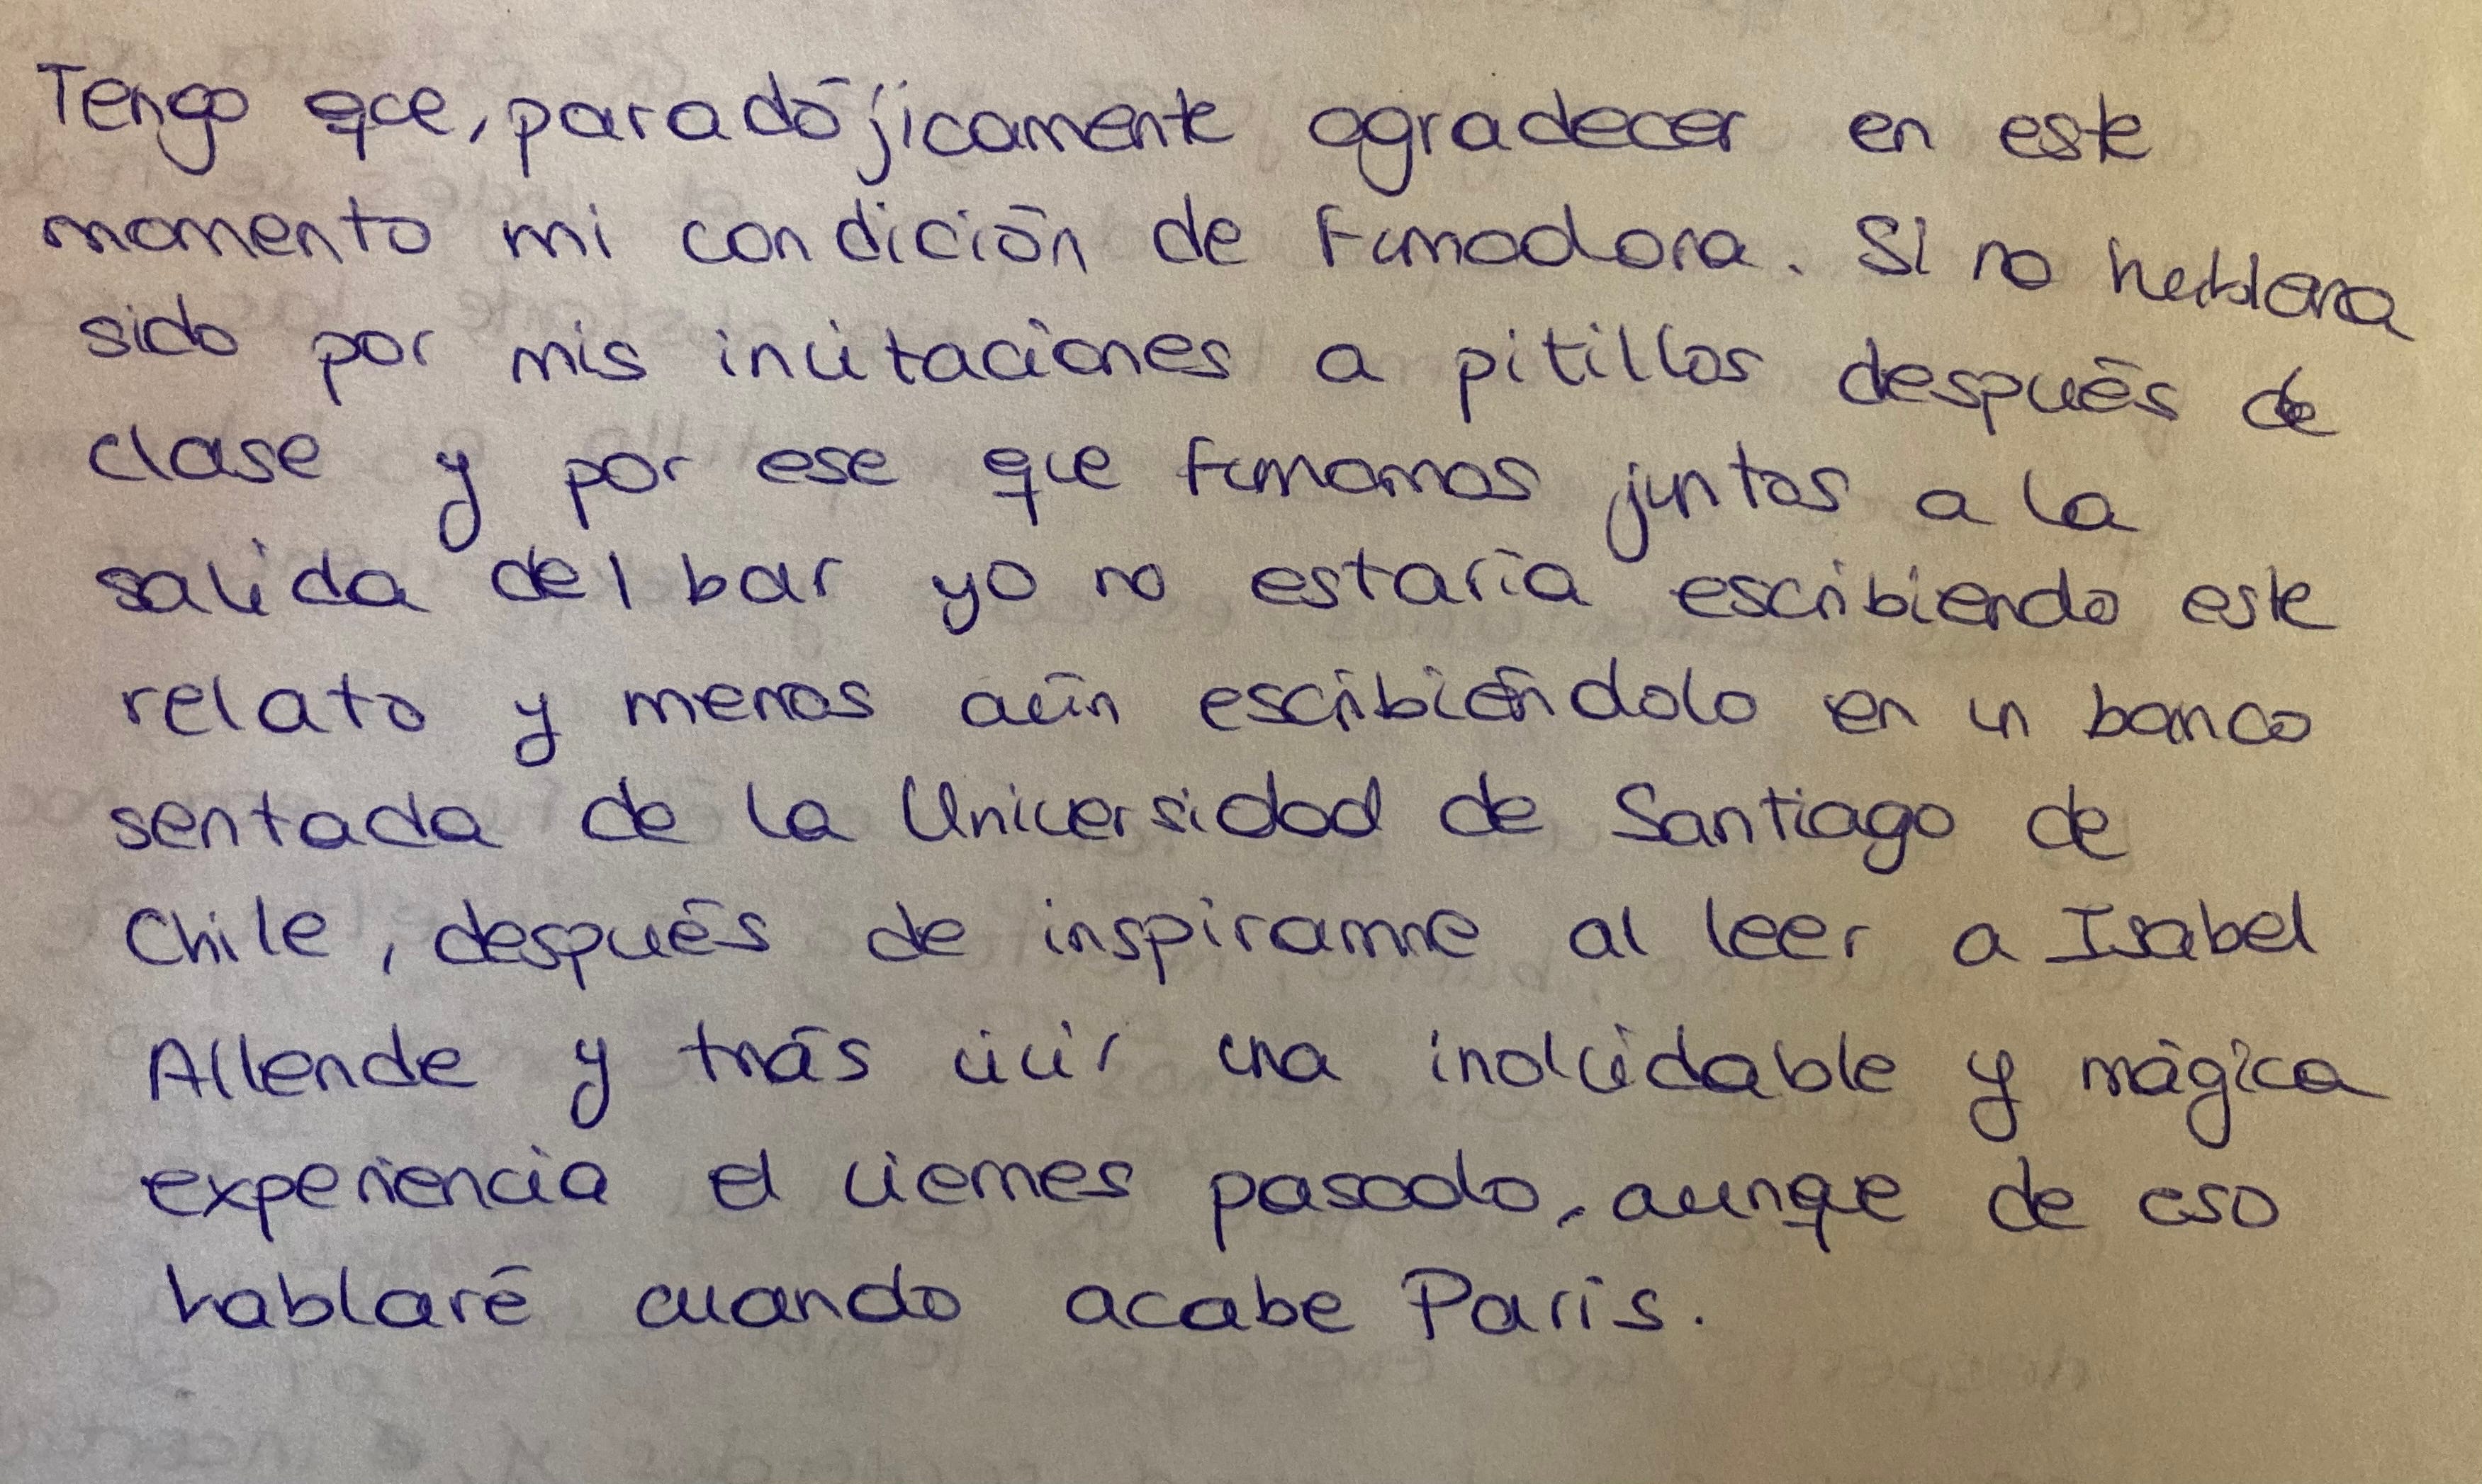 Tengo que, paradójicamente agradecer en este
momento mi condición de fumadora. Si no hubiera
sido por mis invitaciones a pitillos después de
clase y por ese que fumamos juntos a la
salida del bar yo no estaría escribiendo este
relato y menos aún escribiéndolo en un banco
sentada de la Universidad de Santiago de
Chile, después de inspirarme al leer a Isabel
Allende y trás vivir una inolvidable y mágica
experiencia el viernes pasado, aunque de eso
hablaré cuando acabe París.